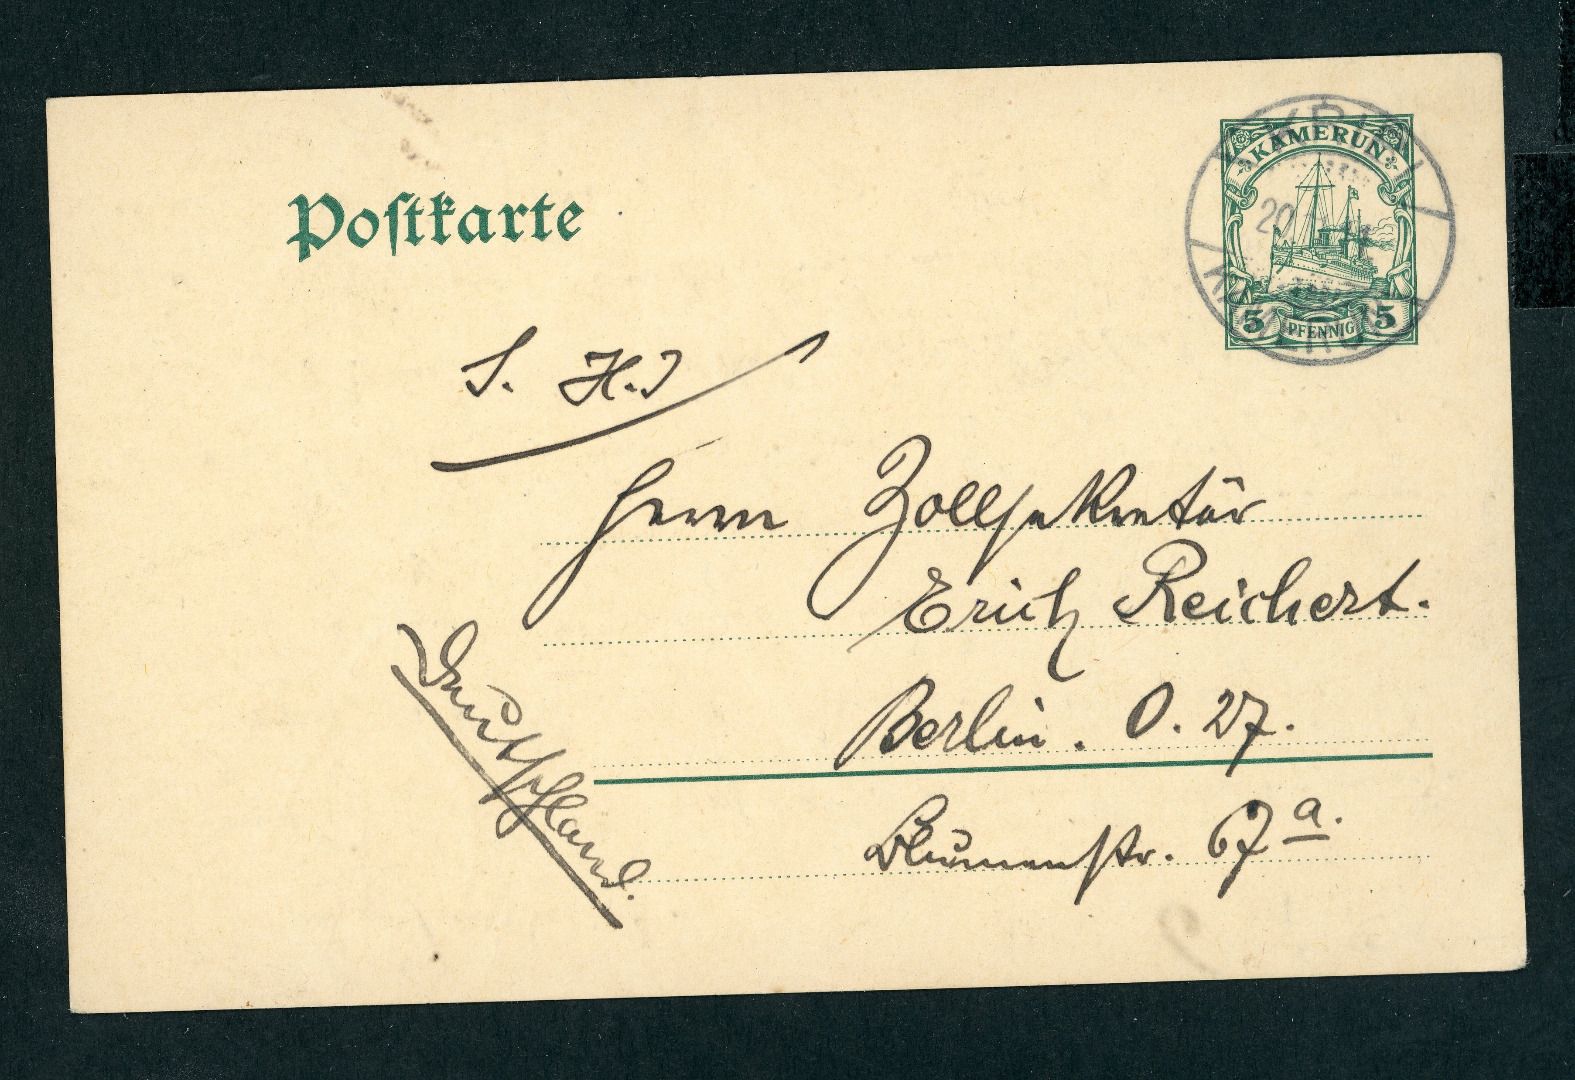 Postkarte
KAMERUN
5 PFENNIG 5
KRIBI
20
KAMERUN
S. H.
Herrn Zollsekretär
Erich Reichert.
Berlin. O. 27.
Blumenstr. 67a.
Deutschland.